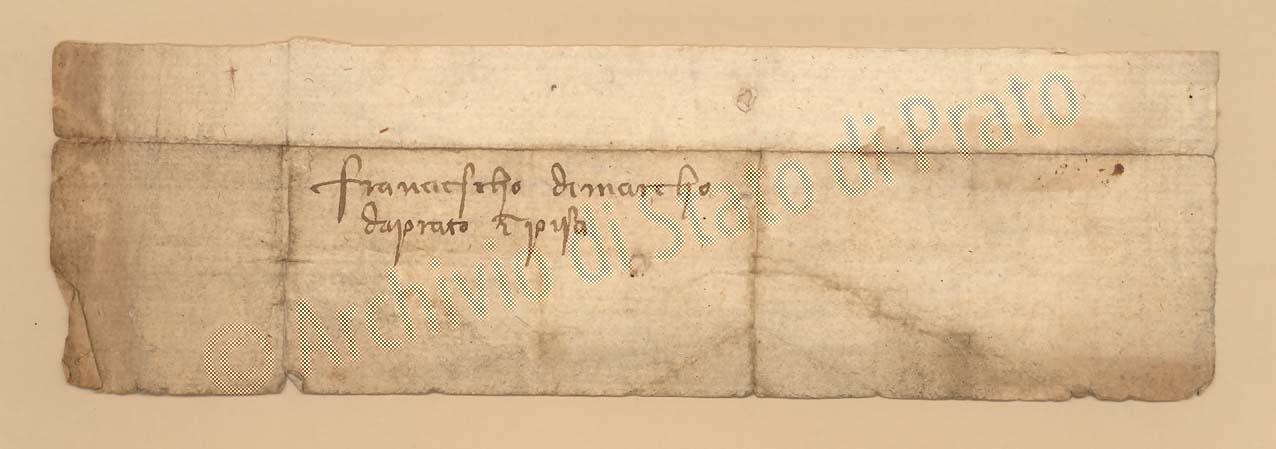 francescho dimarcho
daprato ī pisa
© Archivio di Stato di Prato